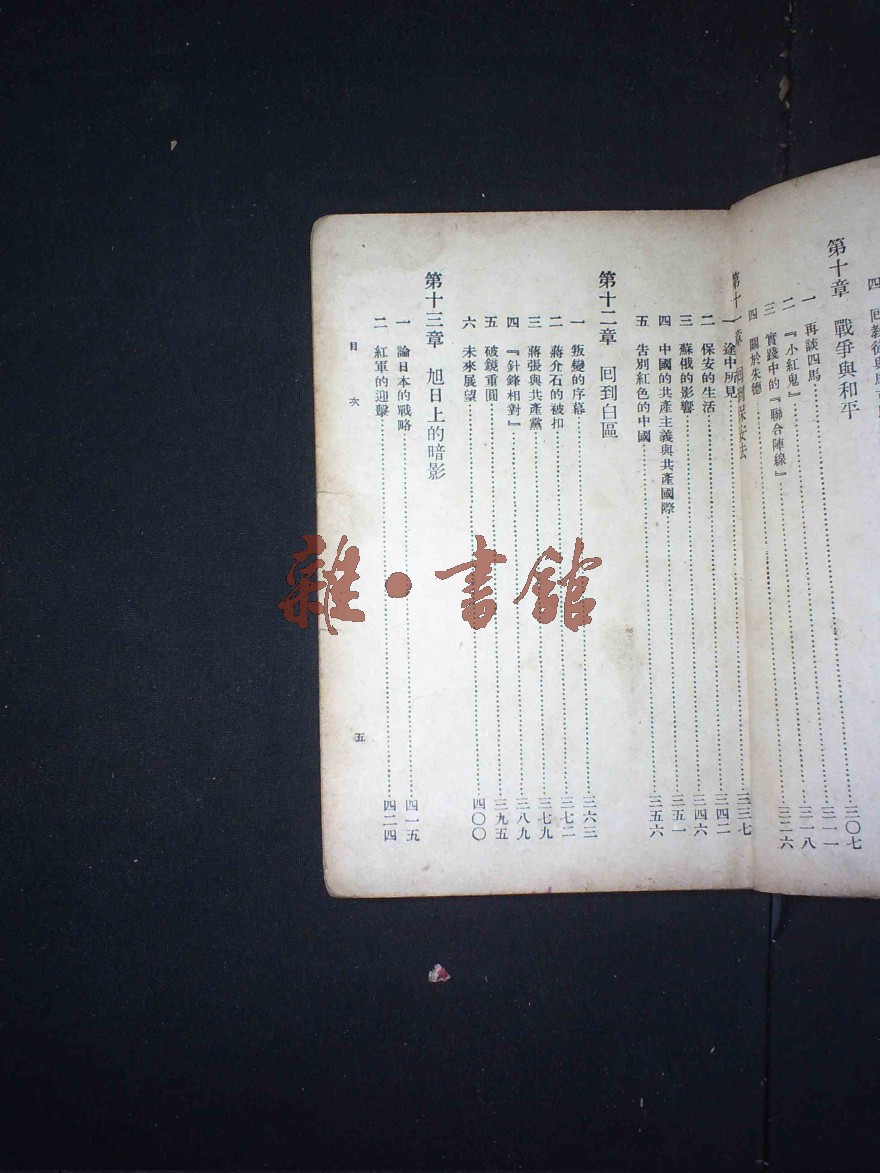 四 回教徒與馬
第十章 戰爭與和平
一 再談四馬………三〇七
二 『小紅鬼』………三一一
三 實踐中的『聯合陣線』………三一八
四 關於朱德………三二六
第十一章 回到保安去
一 途中所見………三三七
二 保安的生活………三四二
三 蘇俄的影響………三四六
四 中國的共產主義與共產國際………三五一
五 告別紅色的中國………三五六
第十二章 回到白區
一 叛變的序幕………三六三
二 蔣介石的被扣………三七二
三 蔣張與共產黨………三七九
四 『針鋒相對』………三八九
五 破鏡重圓………三九五
六 未來展望………四〇〇
第十三章 旭日上的暗影
一 論日本的戰略………四一五
二 紅軍的迎擊………四二四
目次
五
雜·書館